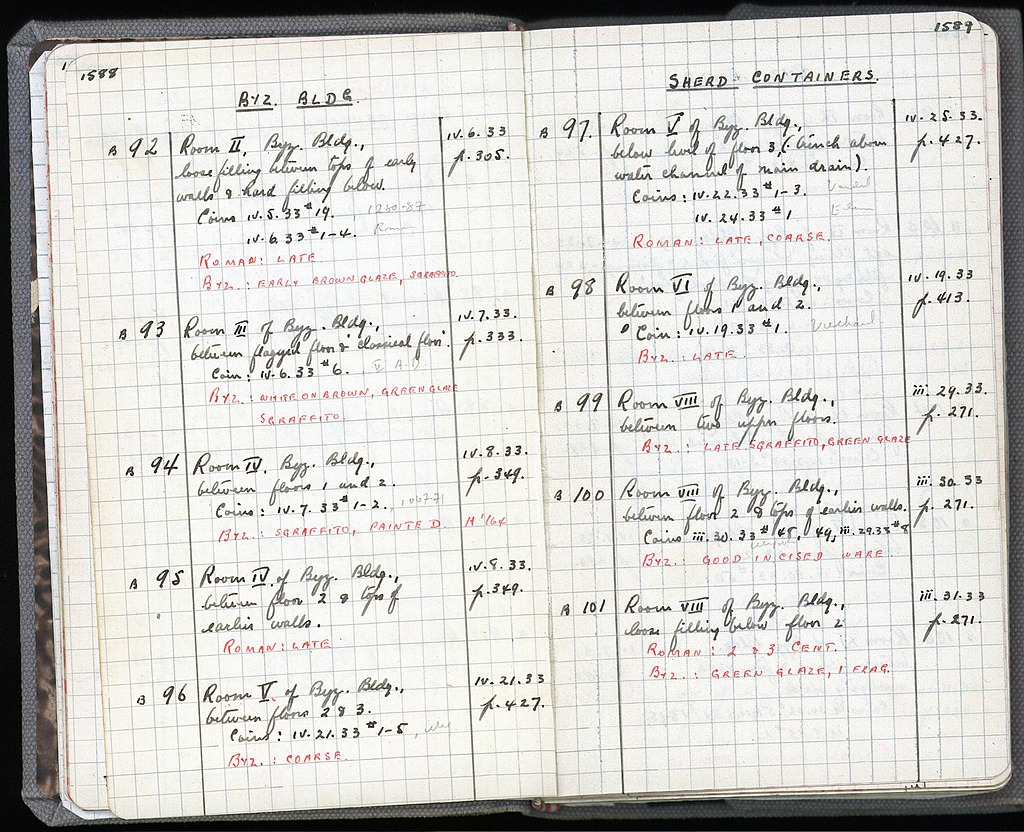 1588
BYZ. BLDG.
B 92 Room II, Byz. Bldg., IV.6.33
loose filling between tops of early p.305.
walls & hard filling below.
Coins IV.5.33 #19.
IV.6.33 #1-4.
ROMAN: LATE
BYZ.: EARLY BROWN GLAZE, SGRAFFITO.
B 93 Room III of Byz. Bldg., IV.7.33.
between flagged floor & classical floor. p.333.
Coin: IV.6.33 #6.
BYZ.: WHITE ON BROWN, GREEN GLAZE
SGRAFFITO.
B 94 Room IV, Byz. Bldg., IV.8.33.
between floors 1 and 2. p.349.
Coins: IV.7.33 #1-2.
BYZ.: SGRAFFITO, PAINTED. H'164
B 95 Room IV of Byz. Bldg., IV.8.33.
between floor 2 & tops of p.349.
earlier walls.
ROMAN: LATE
B 96 Room V of Byz. Bldg., IV.21.33
between floors 2 & 3. p.427.
Coins: IV.21.33 #1-5,
BYZ.: COARSE.
1589
SHERD CONTAINERS.
B 97. Room V of Byz. Bldg., IV.25.33.
below level of floor 3, (: trench above p.427.
water channel of main drain).
Coins: IV.22.33 #1-3.
IV.24.33 #1
ROMAN: LATE, COARSE.
B 98 Room VI of Byz. Bldg., IV.19.33
between floors 1 and 2. p.413.
Coin: IV.19.33 #1.
BYZ.: LATE.
B 99 Room VIII of Byz. Bldg., III.29.33.
between two upper floors. p.271.
BYZ.: LATE SGRAFFITO, GREEN GLAZE
B 100 Room VIII of Byz. Bldg., III.30.33
between floor 2 & tops of earlier walls. p.271.
Coins III.30.33 #45, 49, III.29.33 #8
BYZ.: GOOD INCISED WARE.
B 101 Room VIII of Byz. Bldg., III.31.33
loose filling below floor 2 p.271.
ROMAN: 2 & 3 CENT.
BYZ.: GREEN GLAZE, 1 FRAG.